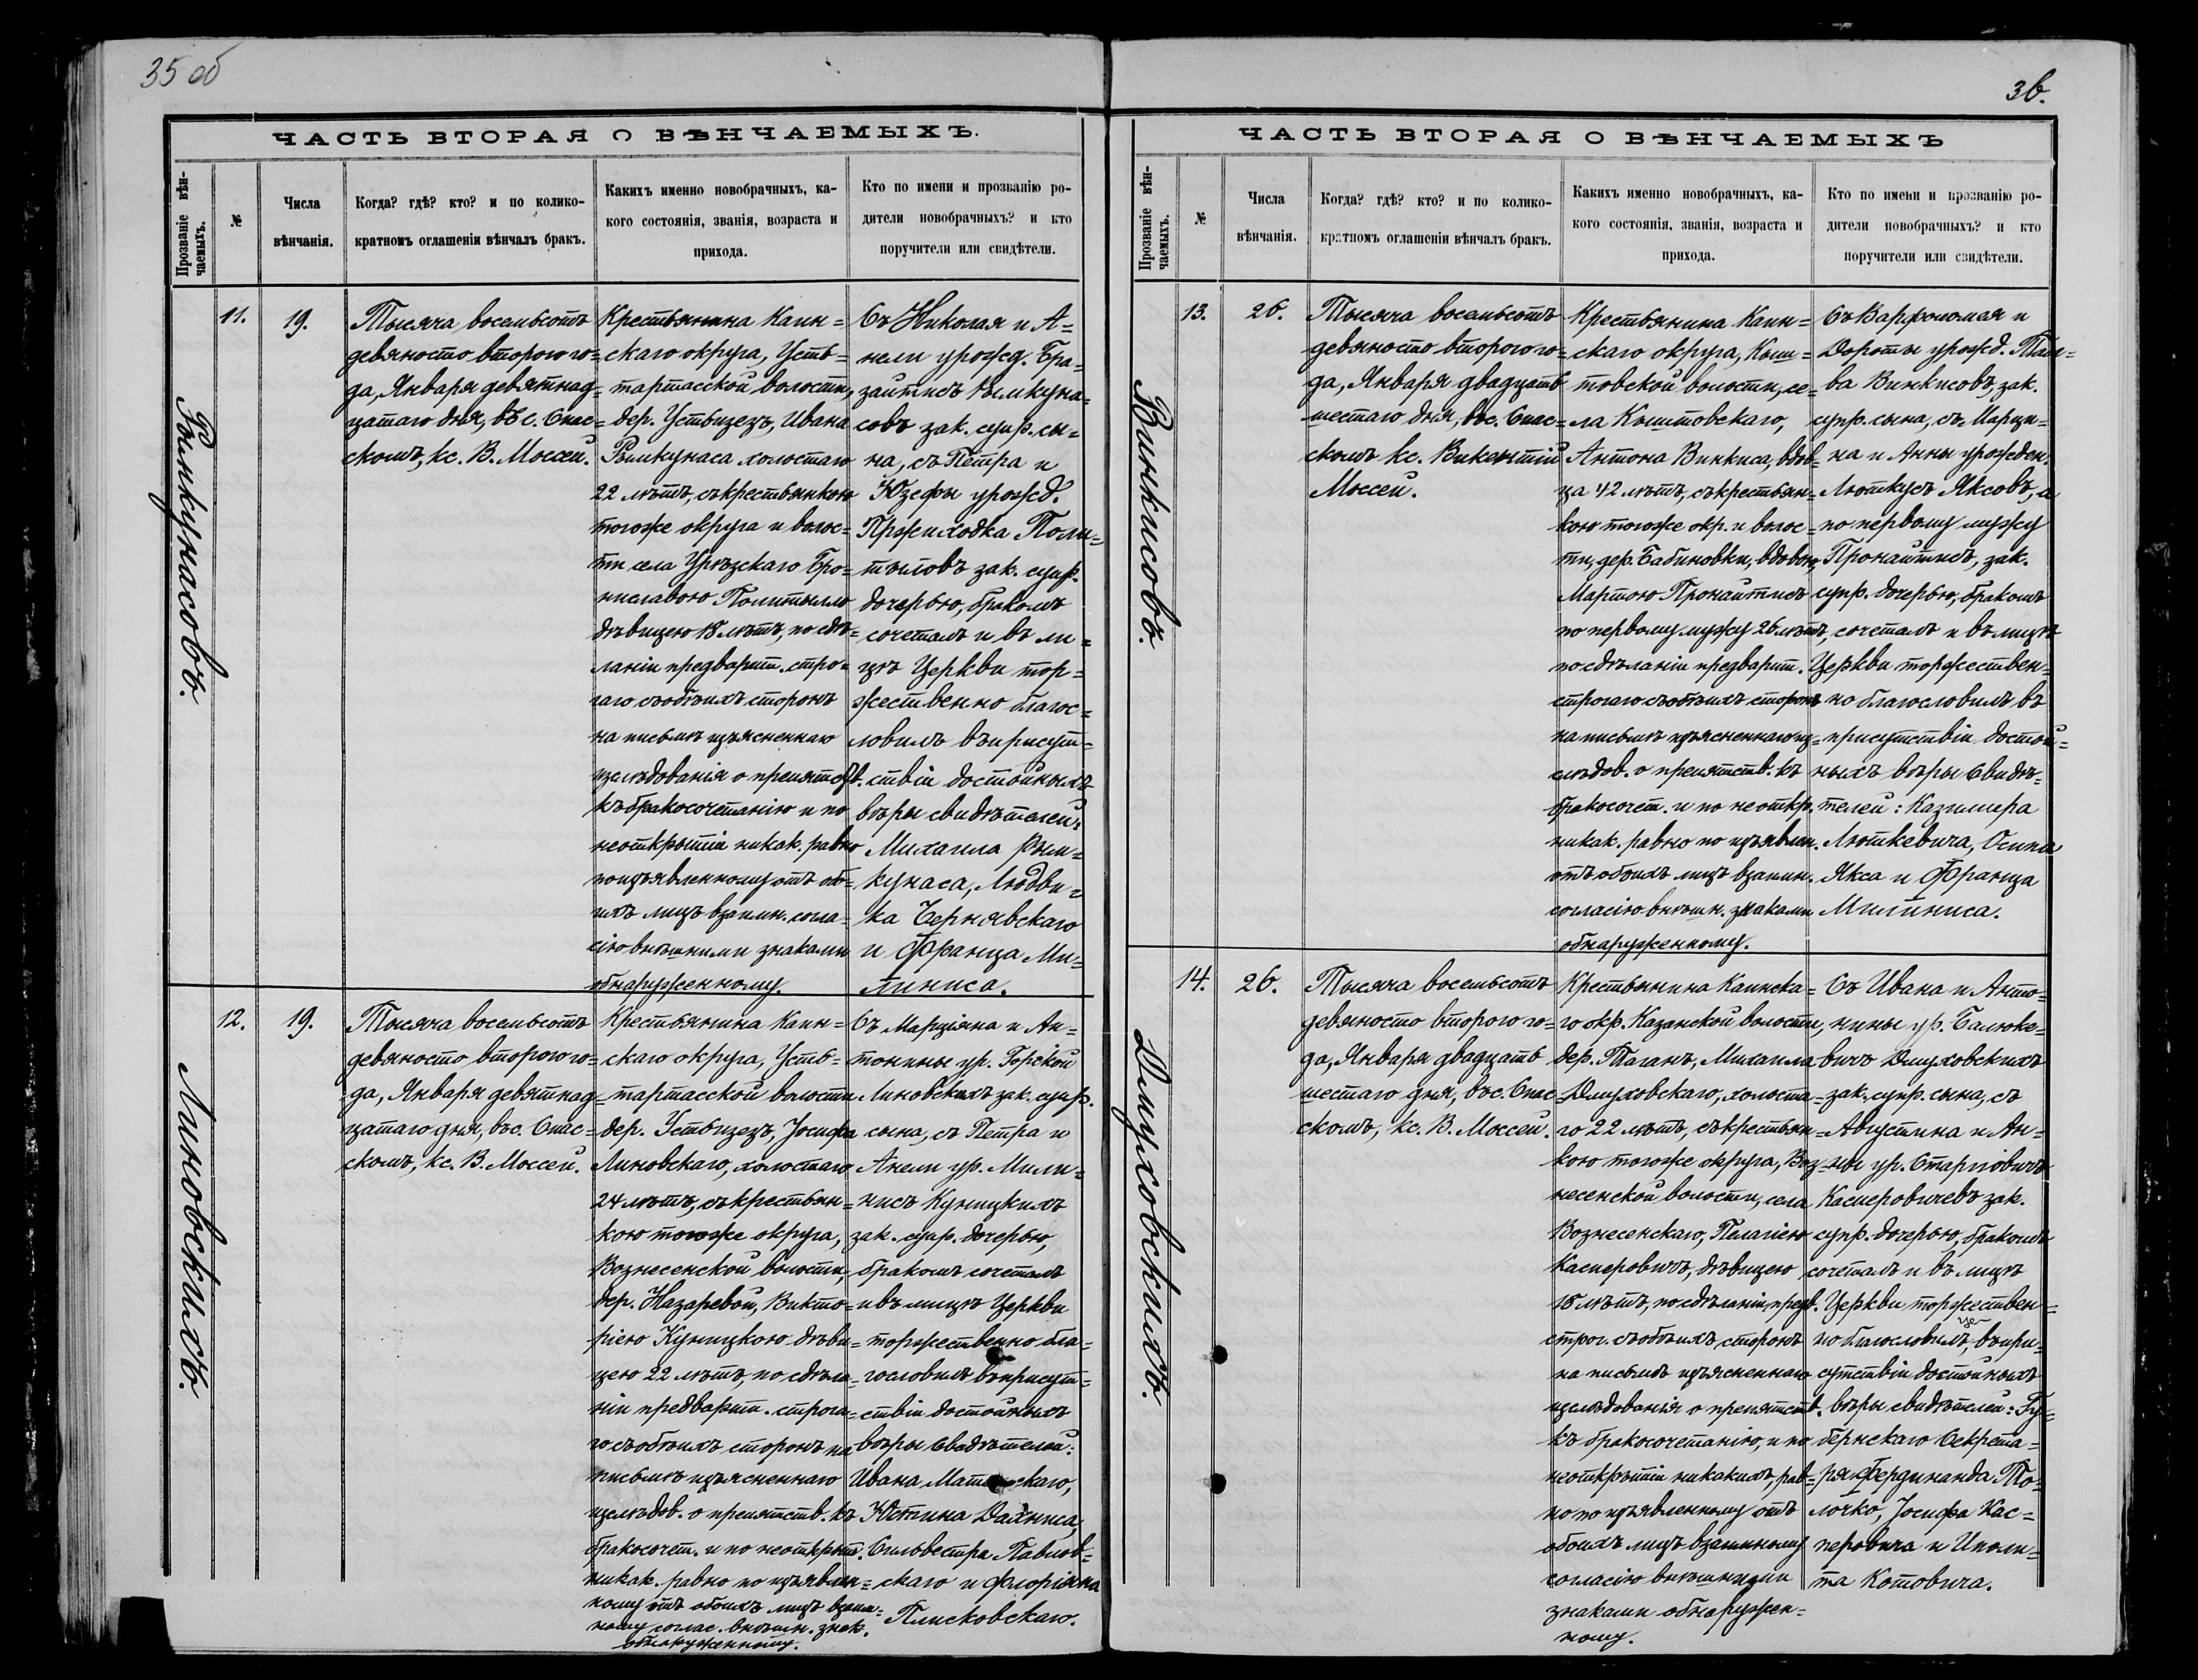 35 об
ЧАСТЬ ВТОРАЯ О ВѢНЧАЕМЫХЪ.
Прозваніе вѣн-
чаемыхъ.
№
Числа
вѣнчанія.
Когда? гдѣ? кто? и по колико-
кратномъ оглашеніи вѣнчалъ бракъ.
Какихъ именно новобрачныхъ, ка-
кого состоянія, званія, возраста и
прихода.
Кто по имени и прозванію ро-
дители новобрачныхъ? и кто
поручители или свидѣтели.
Рымкунасовъ.
11.
19.
Тысяча восемьсотъ
девяносто второго го=
да, Января девятнад=
цатаго дня, въ с. Спас=
скомъ, кс. В. Моссей.
Крестьянина Каин=
скаго округа, Усть=
тартасской волости,
дер. Устьизезъ, Ивана
Рымкунаса холостаго
22 лѣтъ, съ крестьянкою
тогоже округа и волос=
ти села Урѣзскаго Бро=
ниславою Политылло
дѣвицею 18 лѣтъ, по сдѣ=
ланіи предварит. стро=
гаго съ обѣихъ сторонъ
на письмѣ изъясненнаго
изслѣдованія о препятств.
къ бракосочетанію и по
неоткрытіи никак. равно
по изъявленному отъ обо=
ихъ лицъ взаимн. согла=
сію внѣшними знаками
обнаруженному.
Съ Николая и А=
нели урожд. Бра=
зайтисъ Рымкуна=
совъ зак. супр. сы=
на, съ Петра и
Юзефы урожд.
Пржиходка Поли=
тыловъ зак. супр.
дочерью, бракомъ
сочеталъ и въ ли=
цѣ Церкви тор=
жественно благос=
ловилъ въ присут=
ствіи достойныхъ
вѣры свидѣтелей:
Михаила Рым=
кунаса, Людви=
ка Чернявскаго
и Франца Ми=
линиса.
Линовскихъ.
12.
19.
Тысяча восемьсотъ
девяносто второго го=
да, Января девятнад=
цатаго дня, въ с. Спас=
скомъ, кс. В. Моссей.
Крестьянина Каин=
скаго округа, Усть=
тартасской волости
дер. Устьизезъ, Іосифа
Линовскаго, холостаго
24 лѣтъ, съ крестьян=
кою тогоже округа,
Вознесенской волости,
дер. Назаревой, Викто=
ріею Куницкою дѣви=
цею 22 лѣтъ, по сдѣла=
ніи предварит. строга=
го съ обѣихъ сторонъ на
письмѣ изъясненнаго
изслѣдов. о препятств. къ
бракосочет. и по неоткрыт.
никак. равно по изъявлен=
ному отъ обоихъ лицъ взаим=
ному соглас. внѣшн. знак.
обнаруженному.
Съ Марціяна и Ан=
тонины ур. Горской
Линовскихъ зак. супр.
сына, съ Петра и
Анели ур. Мили=
нисъ Куницкихъ
зак. супр. дочерью,
бракомъ сочеталъ
и въ лицѣ Церкви
торжественно бла=
гословилъ въ присут=
ствіи достойныхъ
вѣры свидѣтелей:
Ивана
Юстина Дахниса,
Сильвестра Павлов=
скаго и Флоріяна
Плисковскаго.
36.
ЧАСТЬ ВТОРАЯ О ВѢНЧАЕМЫХЪ
Прозваніе вѣн-
чаемыхъ.
№
Числа
вѣнчанія.
Когда? гдѣ? кто? и по колико-
кратномъ оглашеніи вѣнчалъ бракъ.
Какихъ именно новобрачныхъ, ка-
кого состоянія, званія, возраста и
прихода.
Кто по имени и прозванію ро-
дители новобрачныхъ? и кто
поручители или свидѣтели.
Винкисовъ.
13.
26.
Тысяча восемьсотъ
девяносто второго го=
да, Января двадцать
шестаго дня, въ с. Спас=
скомъ кс. Викентій
Моссей.
Крестьянина Каин=
скаго округа, Кыш=
товской волости, се=
ла Кыштовскаго,
Антона Винкиса, вдов=
ца 42 лѣтъ, съ крестьян=
кою тогоже окр. и волос=
ти, дер. Бабиновки, вдовою,
Мартою Пронайтисъ
по первому мужу 26 лѣтъ,
по сдѣланіи предварит.
строгаго съ обѣихъ сторонъ
на письмѣ изъясненнаго из=
слѣдов. о препятств. къ
бракосочет. и по неоткр.
никак. равно по изъявлен.
отъ обоихъ лицъ взаимн.
согласію внѣшн. знаками
обнаруженному.
Съ Варфоломая и
Дороты урожд.
ва Винкисовъ, зак.
супр. сына, съ Марци=
на и Анны урожден.
Люткусъ Яксовъ, а
по первому мужу
Пронайтисъ, зак.
супр. дочерью, бракомъ
сочеталъ и въ лицѣ
Церкви торжествен=
но благословилъ въ
присутствіи достой=
ныхъ вѣры свидѣ=
телей: Казимера
Люткевича, Осипа
Якса и Франца
Милиниса.
Длуховскихъ.
14.
26.
Тысяча восемьсотъ
девяносто второго го=
да, Января двадцать
шестаго дня, въ с. Спас=
скомъ, кс. В. Моссей.
Крестьянина Каинска=
го окр. Казанской волости,
дер. Таганъ, Михаила
Длуховскаго, холоста=
го 22 лѣтъ, съ крестьян=
кою тогоже округа, Воз=
несенской волости, села
Вознесенскаго, Пелагіею
Касперовичъ, дѣвицею
18 лѣтъ, по сдѣланіи предв.
строг. съ обѣихъ сторонъ
на письмѣ изъясненнаго
изслѣдованія о препятств.
къ бракосочетанію, и по
неоткрытіи никакихъ, рав=
но по изъявленному отъ
обоихъ лицъ взаимному
согласію внѣшними
знаками обнаружен=
ному.
Съ Ивана и Анто=
нины ур. Балюке=
вичъ Длуховскихъ
зак. супр. сына, съ
Августина и Ан=
ны ур.
Касперовичевъ зак.
супр. дочерью, бракомъ
сочеталъ и въ лицѣ
Церкви торжествен=
но благословилъ, въ при=
сутствіи достойныхъ
вѣры свидѣтелей: Гу=
бернскаго Секрета=
ря Фердинанда То=
лочко, Іосифа Кас=
перовича и Иполи=
та Котовича.